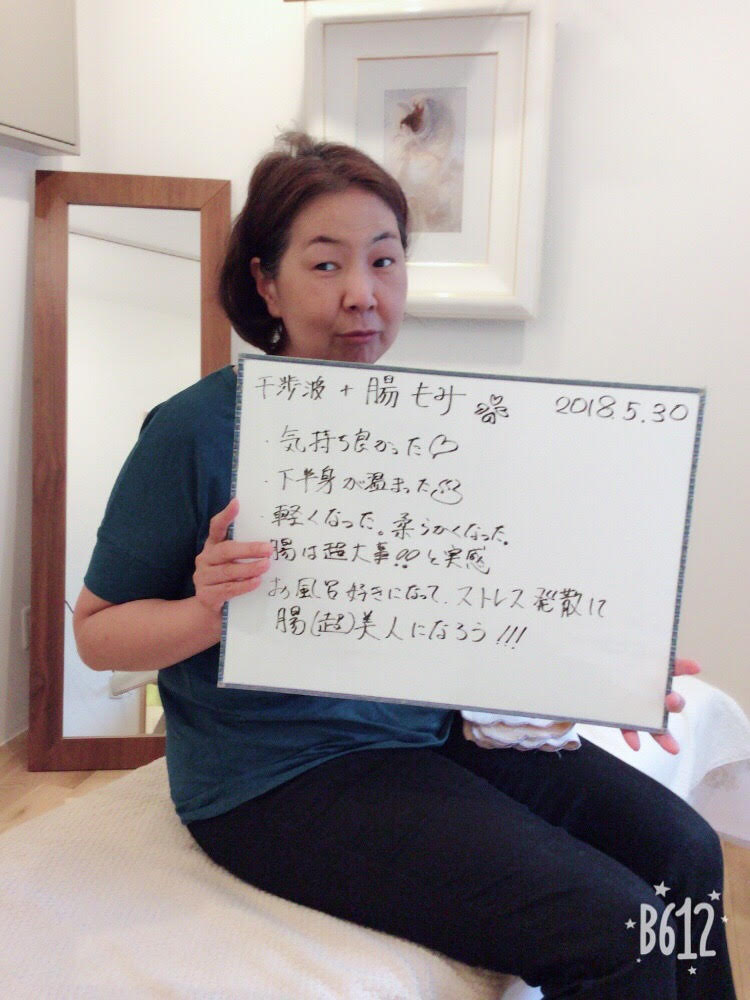 干渉波 + 腸もみ 2018.5.30
・気持ち良かった♡
・下半身が温まった
・軽くなった。柔らかくなった。
腸は超大事!!と実感
お風呂好きになって、ストレス発散して
腸(超)美人になろう!!!
B612